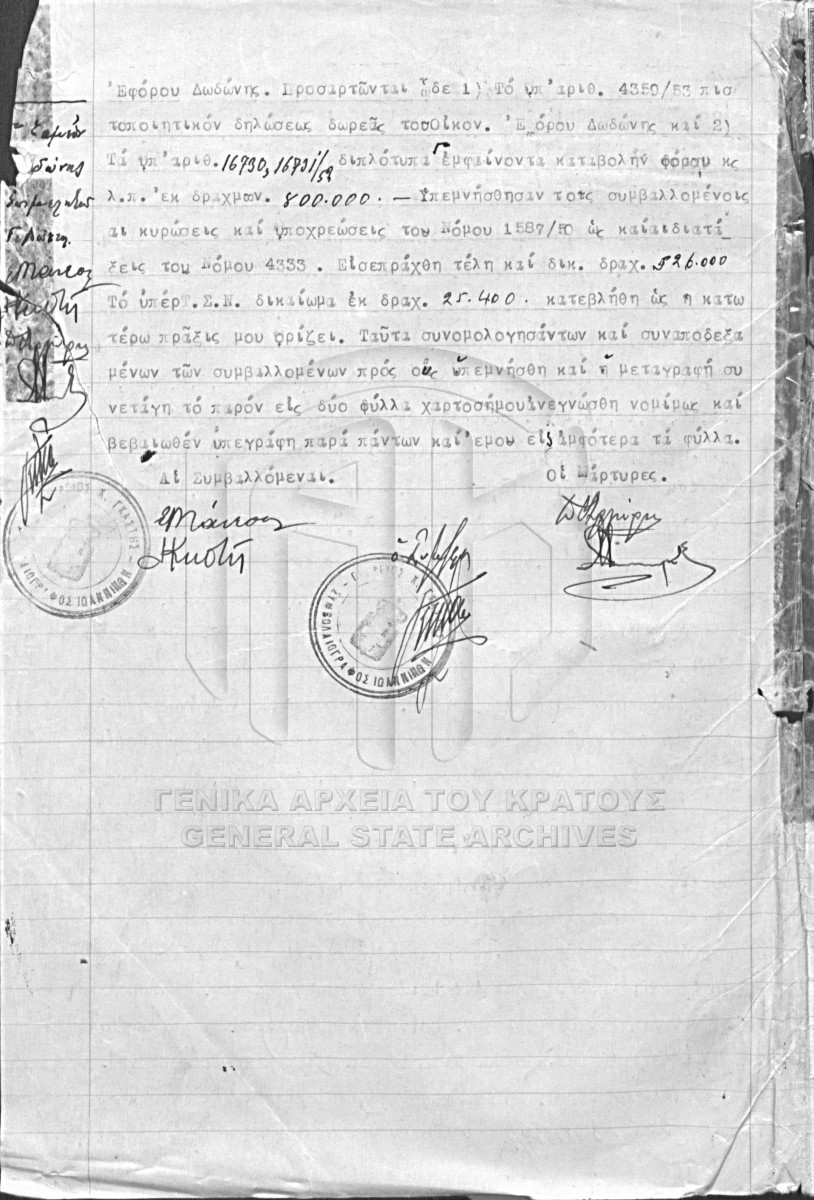 Ἐφόρου Δωδώνης. Προσαρτῶνται ὧδε 1) Τό ὑπ'ἀριθ. 4350/53 πισ
τοποιητικόν δηλώσεως δωρεᾶς τουΟἰκον. Ἐφόρου Δωδώνης καί 2)
Τά ὑπ'ἀριθ. 16730, 16731/52 διπλότυπα ἐμφαίνοντα καταβολήν φόρου κς
λ.π. ἐκ δραχμων. 800.000. — Ὑπεμνήσθησαν τοῖς συμβαλλομένοις
αι κυρώσεις καί ὑποχρεώσεις του Νόμου 1587/50 ὡς καίαιδιατά
ξεις του Νόμου 4333. Εἰσεπράχθη τέλη καί δικ. δραχ. 526.000
Τό ὑπέρΤ.Σ.Ν. δικαίωμα ἐκ δραχ. 25.400. κατεβλήθη ὡς η κατω
τέρω πρᾶξις μου ορίζει. Ταῦτα συνομολογησάντων καί συναποδεξα
μένων τῶν συμβαλλομένων πρός οὕς ὑπεμνήσθη καί ἡ μεταγραφή συ
νετάγη τό παρόν εις δύο φύλλα χαρτοσήμουἀνεγνώσθη νομίμως καί
βεβαιωθέν ὑπεγράφη παρά πάντων καί'εμου εἰς ἀμφότερα τά φύλλα.
Αἱ Συμβαλλόμεναι.
Οἱ Μάρτυρες.
ΓΕΝΙΚΑ ΑΡΧΕΙΑ ΤΟΥ ΚΡΑΤΟΥΣ
GENERAL STATE ARCHIVES